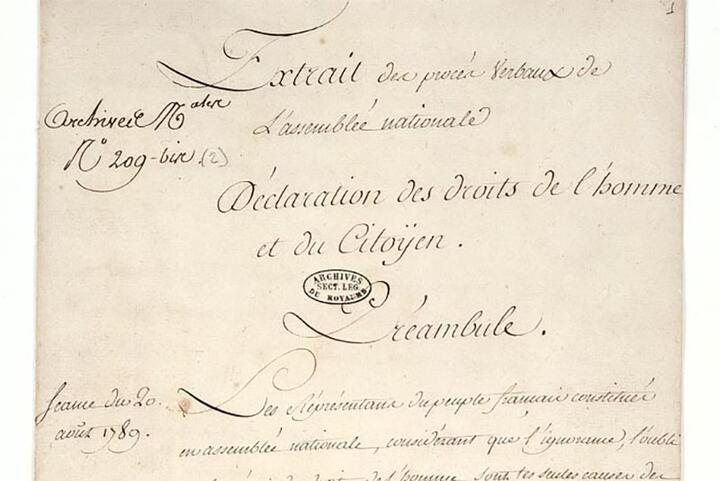 1
Extrait des procés Verbaux de
L'assemblée nationale
Archives N^ales
N° 209-bis (2)
Déclaration des droits de l'homme
et du Citoÿen.
ARCHIVES
SECT. LEG.
DU ROYAUME
Préambule.
Seance du 20.
août 1789.
Les Réprésentans du peuple francais constitués
en assemblée nationale, considérant que l'ignorance, l'oubli
droits de l'homme sont les seules causes des